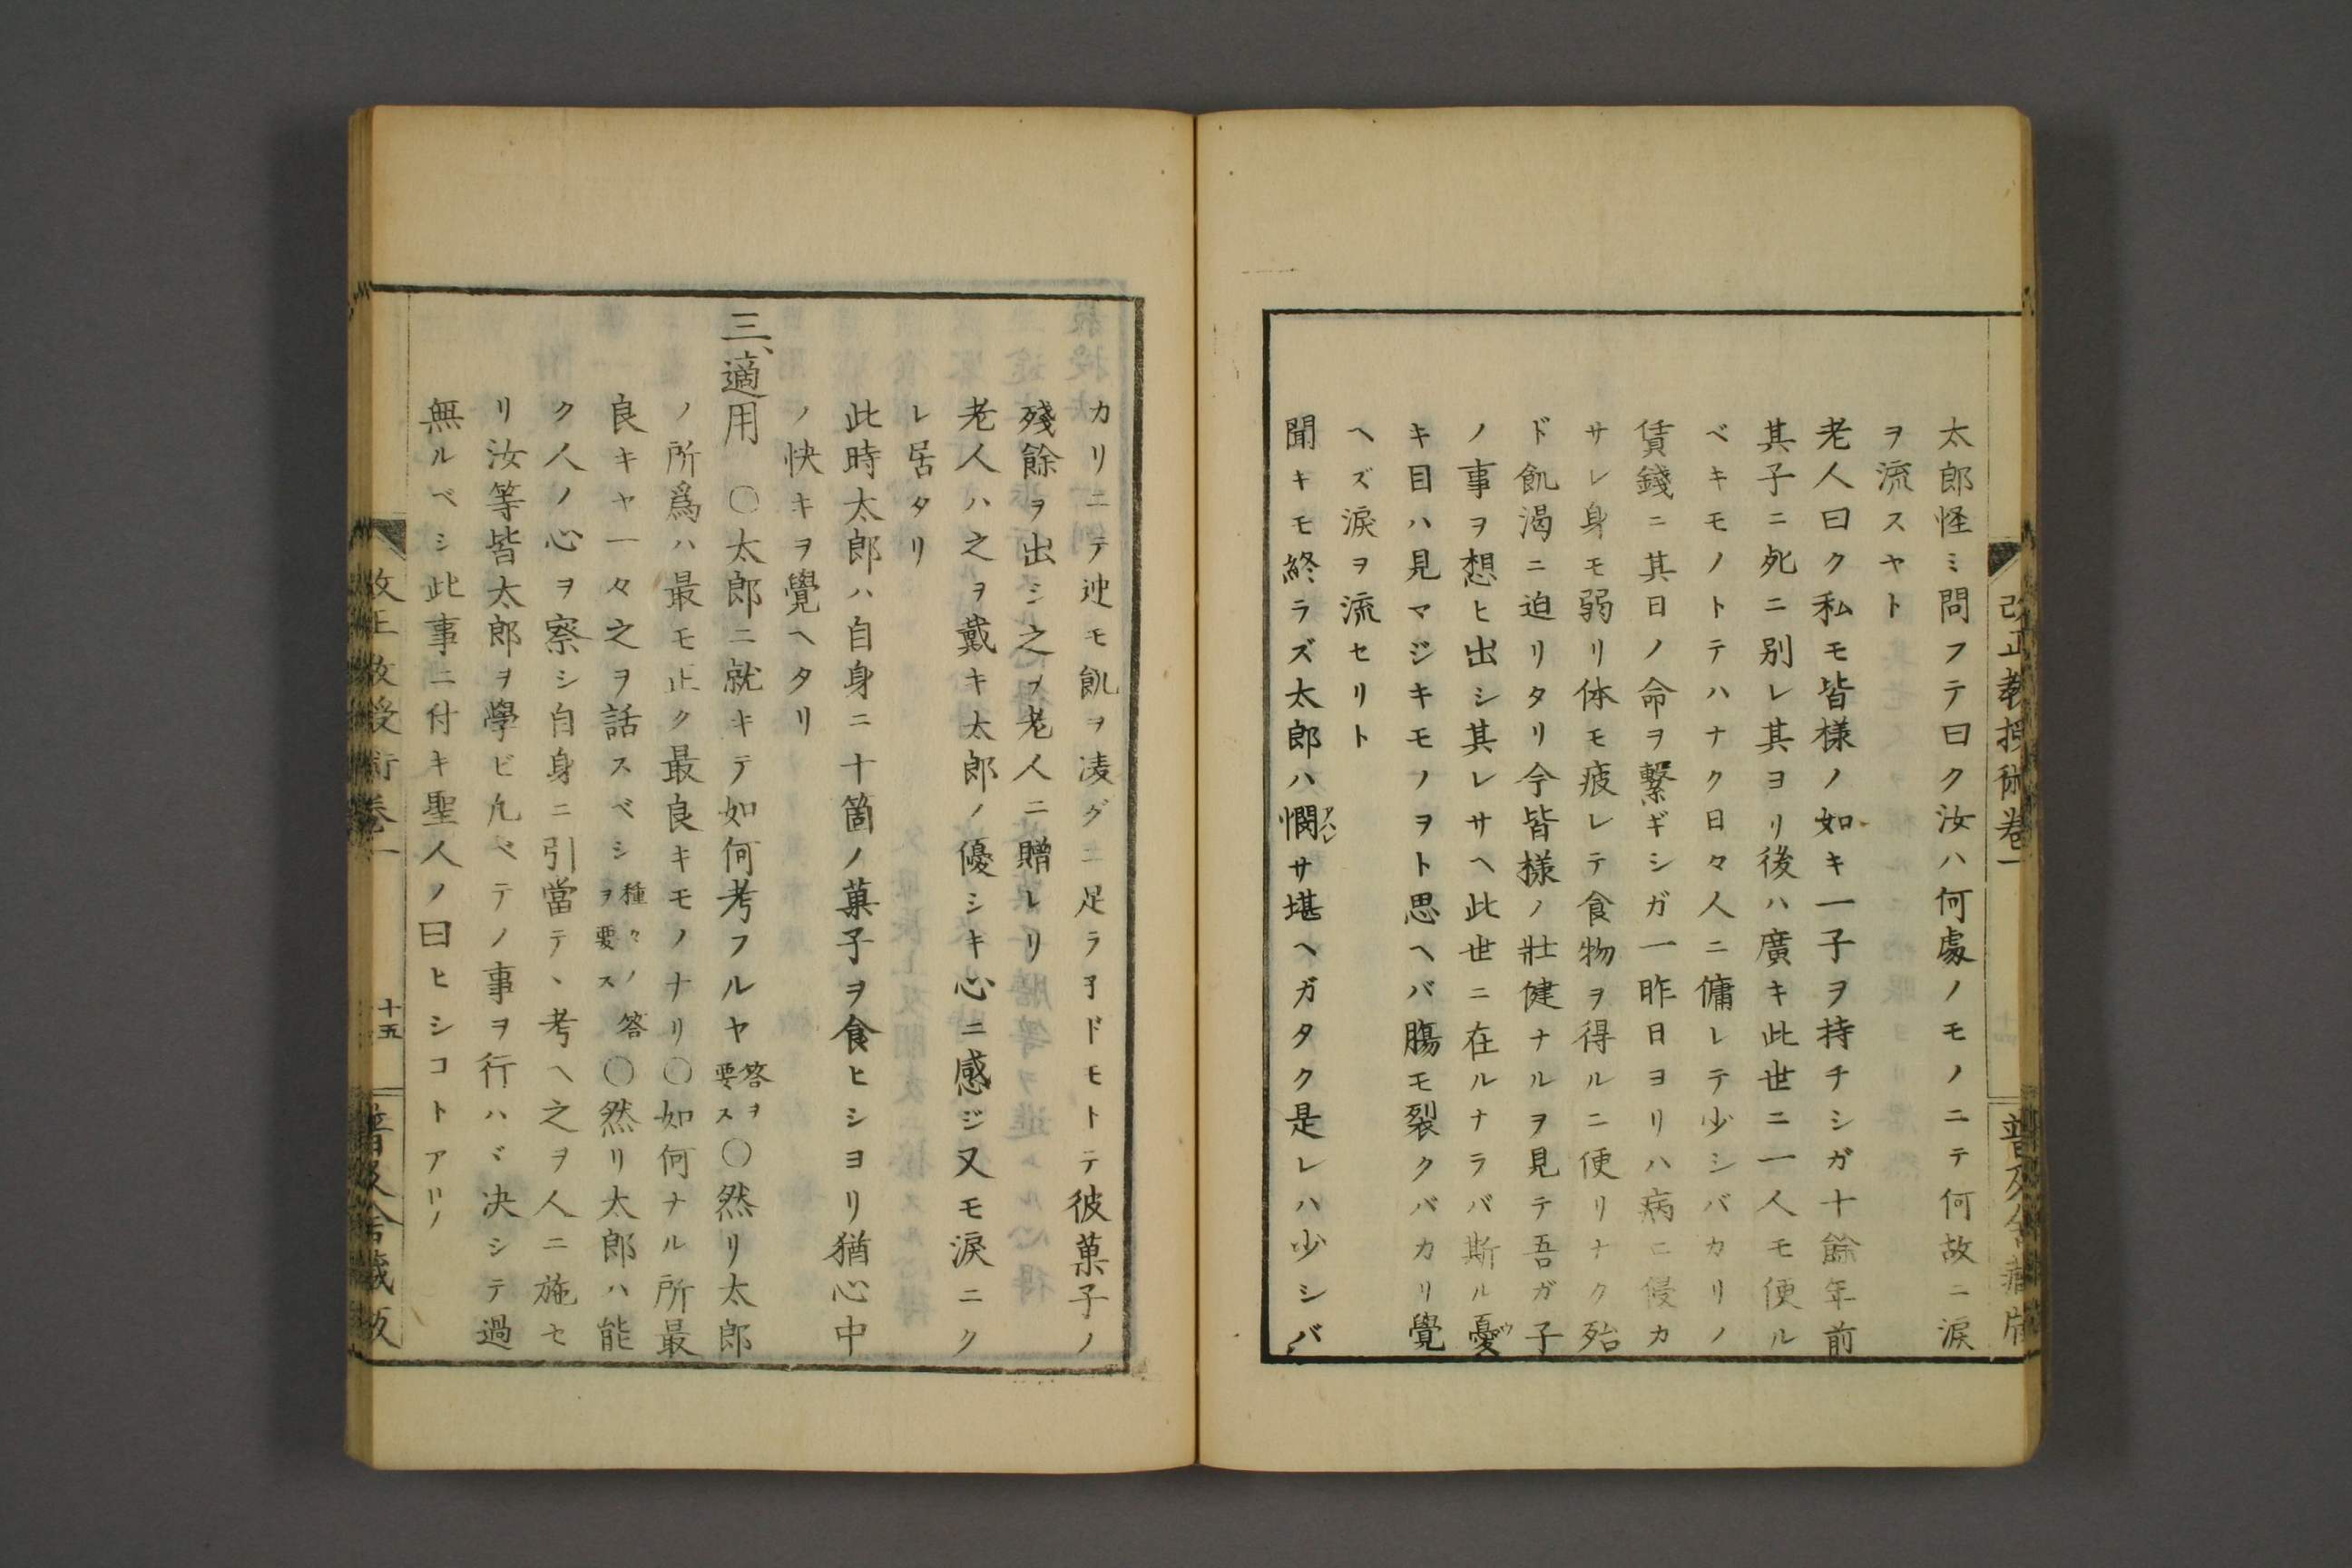 太郎怪ミ問フテ曰ク汝ハ何處ノモノニテ何故ニ淚
ヲ流スヤト
老人曰ク私モ皆様ノ如キ一子ヲ持チシガ十餘年前
其子ニ死ニ別レ其ヨリ後ハ廣キ此世ニ一人モ便ル
ベキモノトテハナク日々人ニ傭レテ少シバカリノ
賃錢ニ其日ノ命ヲ繫ギシガ一昨日ヨリハ病ニ侵カ
サレ身モ弱リ体モ疲レテ食物ヲ得ルニ便リナク殆
ド飢渴ニ迫リタリ今皆様ノ壯健ナルヲ見テ吾ガ子
ノ事ヲ想ヒ出シ其レサヘ此世ニ在ルナラバ斯ル憂
キ目ハ見マジキモノヲト思ヘバ膓モ裂クバカリ覺
ヘズ淚ヲ流セリト
聞キモ終ラズ太郎ハ憫サ堪ヘガタク是レハ少シバ
カリニテ迚モ飢ヲ凌グニ足ラ子ドモトテ彼菓子ノ
殘餘ヲ出シ之ヲ老人ニ贈レリ
老人ハ之ヲ戴キ太郎ノ優シキ心ニ感ジ又モ淚ニク
レ居タリ
此時太郎ハ自身ニ十箇ノ菓子ヲ食ヒシヨリ猶心中
ノ快キヲ覺ヘタリ
三、適用 〇太郎ニ就キテ如何考フルヤ答ヲ要ス〇然リ太郎
ノ所爲ハ最モ正ク最良キモノナリ〇如何ナル所最
良キヤ一々之ヲ話スベシ種々ノ答ヲ要ス〇然リ太郎ハ能
ク人ノ心ヲ察シ自身ニ引當テヽ考ヘ之ヲ人ニ施セ
リ汝等皆太郎ヲ學ビ凡ベテノ事ヲ行ハヾ决シテ過
無ルベシ此事ニ付キ聖人ノ曰ヒシコトアリ
改正教授術卷一
十五
普及舍藏版